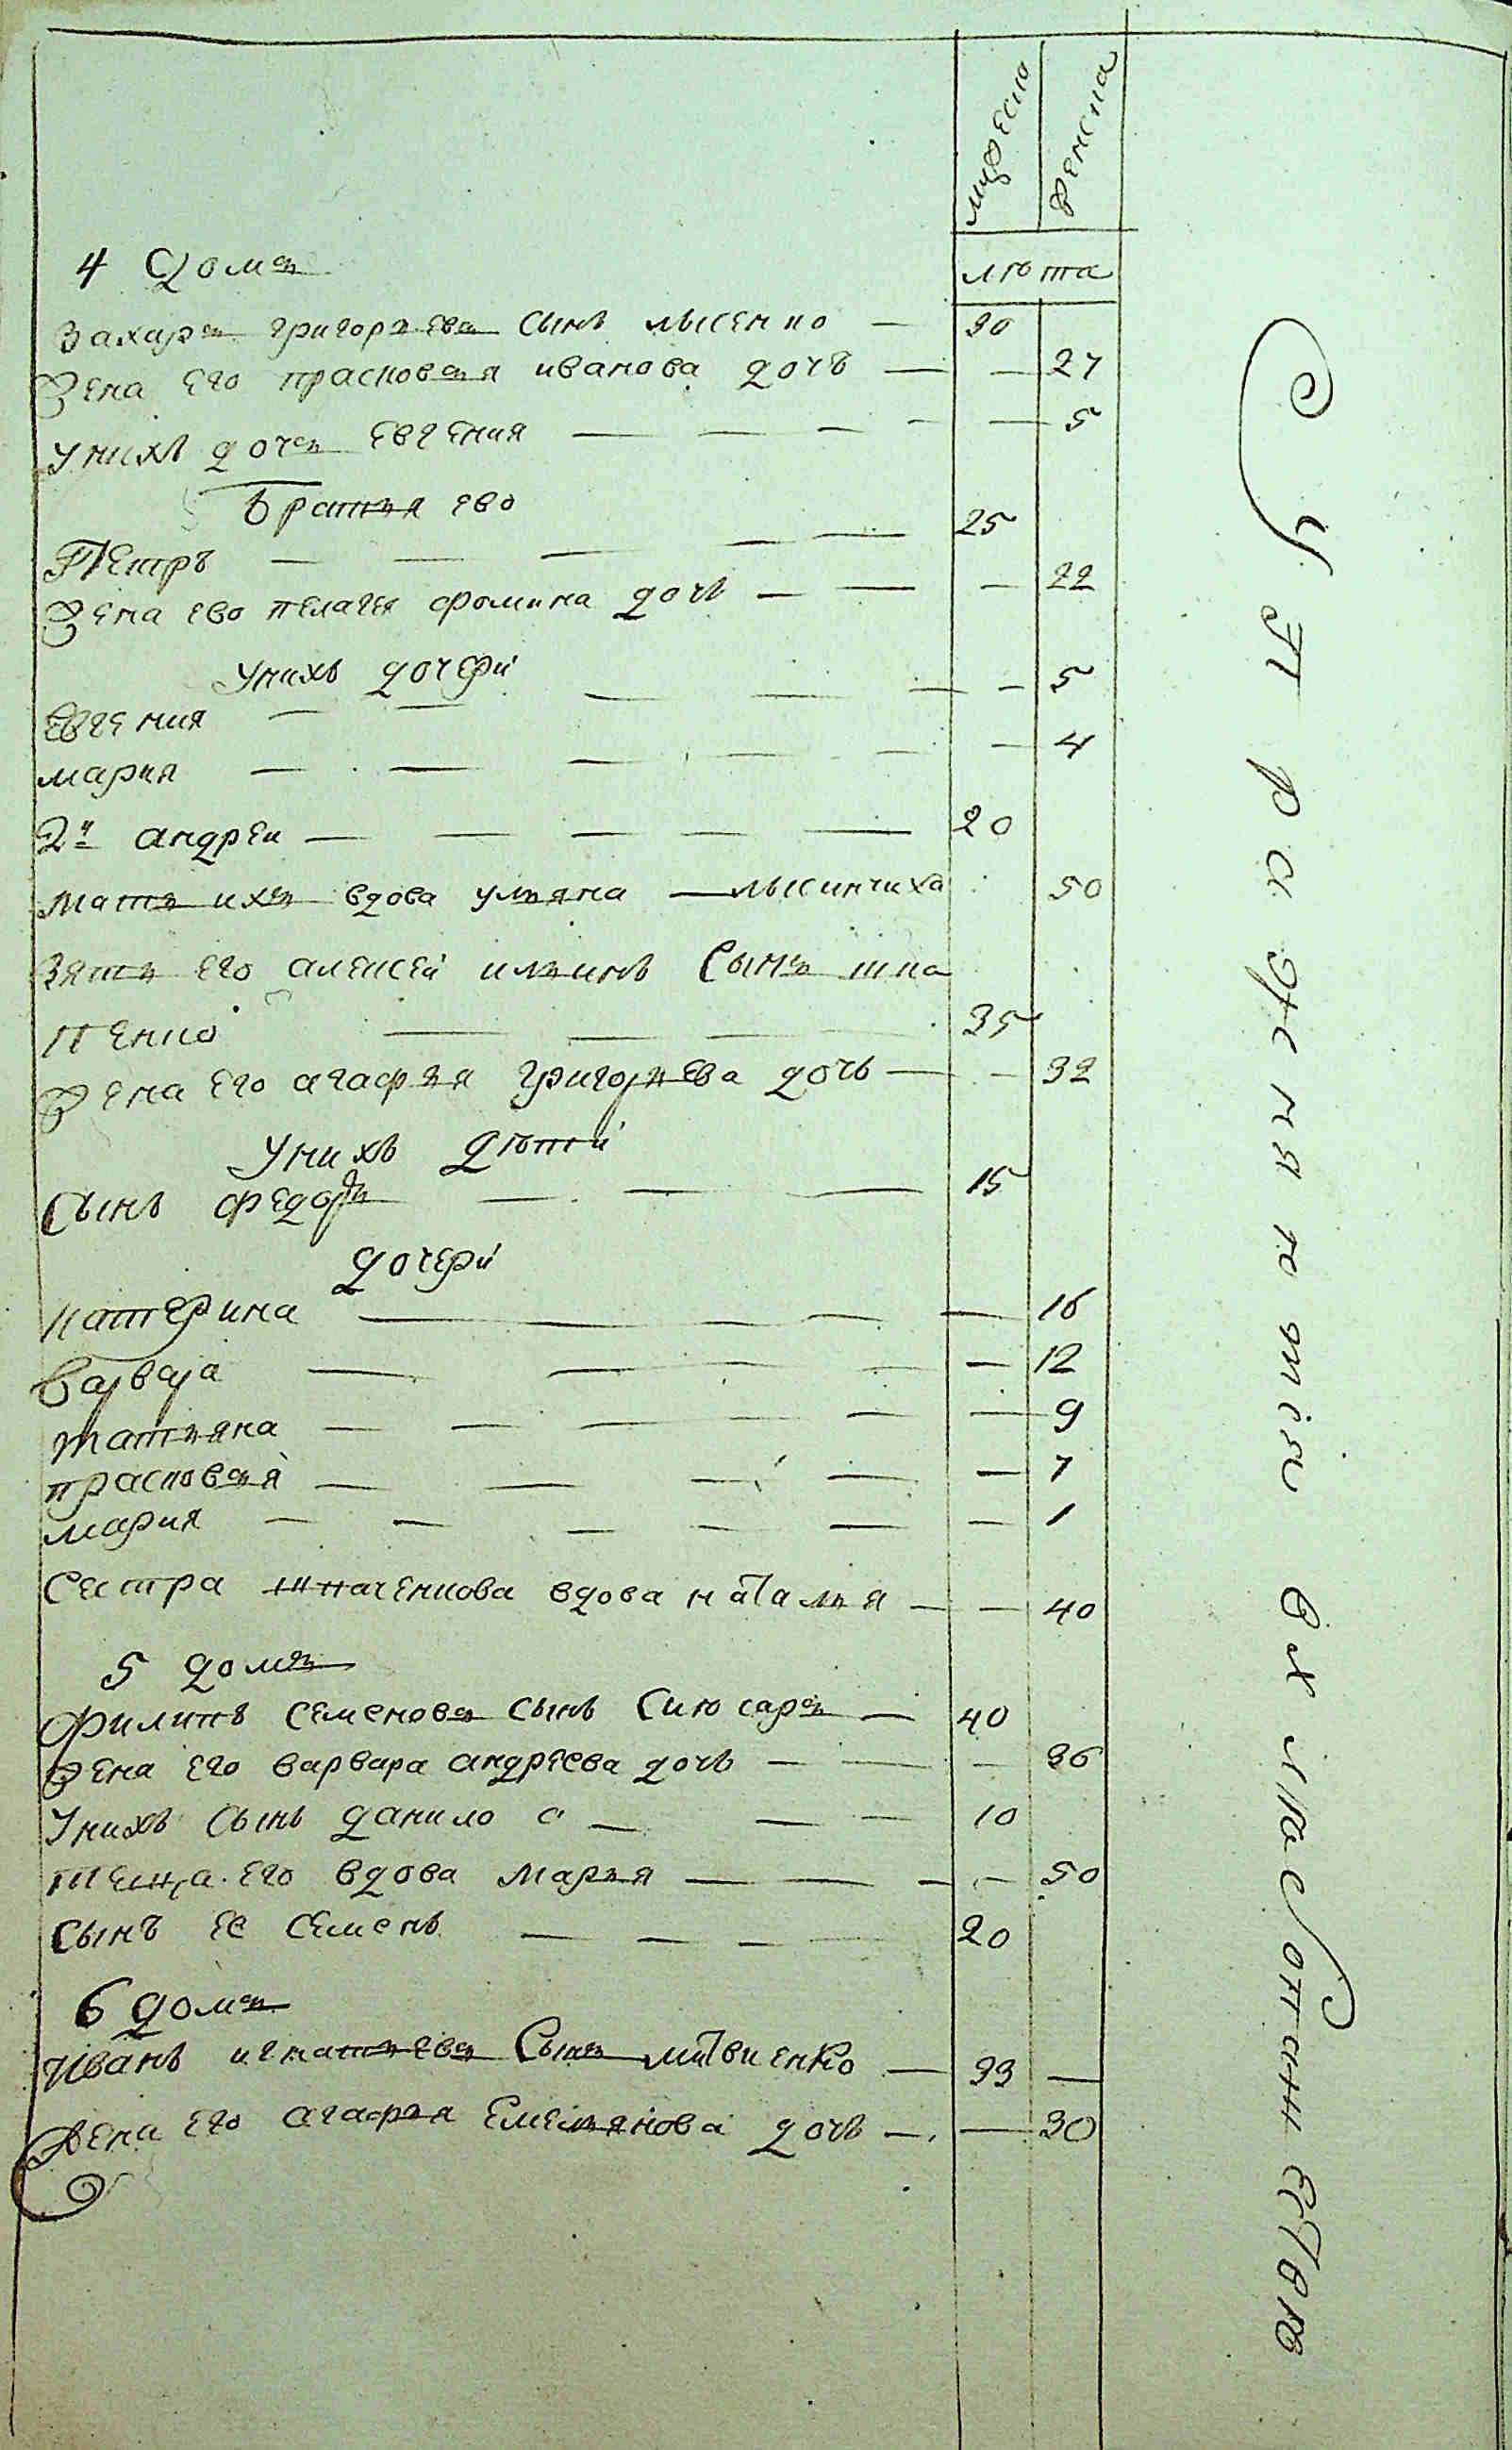 мужеско женска
лѣта
4 Домъ
Захаръ григорьевъ сынъ лысенко — 30
Жена его прасковья иванова дочь — — 27
У нихъ дочь Евгения — — — — — 5
Братья ево
Петръ — — — — — 25
Жена ево пелагея фомина дочь — — — 22
У нихъ дочери
Евгения — — — — — — 5
мария — — — — — — — 4
2й андреи — — — — — 20
мать ихъ вдова ульяна — лысинчиха 50
Зять его алексей ильинъ Сынъ шпа
ченко — — — 35
Жена его агафья григорьева дочь — — 32
У нихъ дѣти
Сынъ федоръ — — — 15
дочери
катерина — — — — 16
варвара — — — — — 12
татьяна — — — — — — 9
прасковья — — — — — 7
мария — — — — — — 1
Сестра шпаченкова вдова наталья — — 40
5 домъ
Филипъ Семеновъ Сынъ Слюсарь — 40
Жена его варвара андреева дочь — — — 36
У нихъ Сынъ данило — — — 10
теща его вдова марья — — — — 50
Сынъ ее Семенъ — — — — 20
6 домъ
Иванъ игнатьевъ Сынъ литвиенко — 33 —
Жена его агафья Емельянова дочь — — 30
Супражнякотіи въ